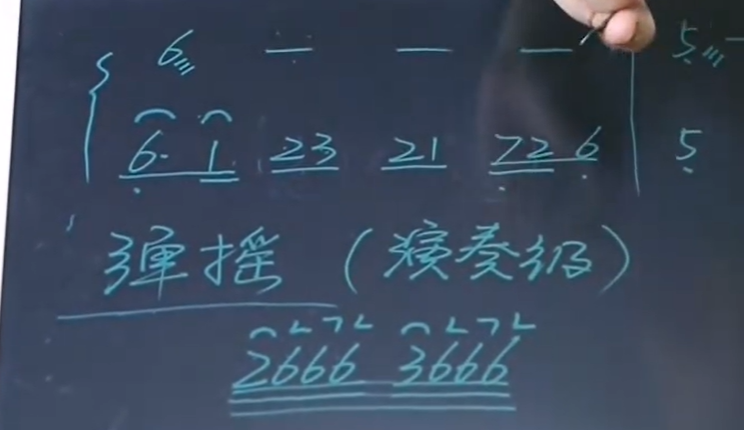 6 — — — | 5 —
6· 1 23 21 726 | 5
弹摇（演奏级）
2666 3666